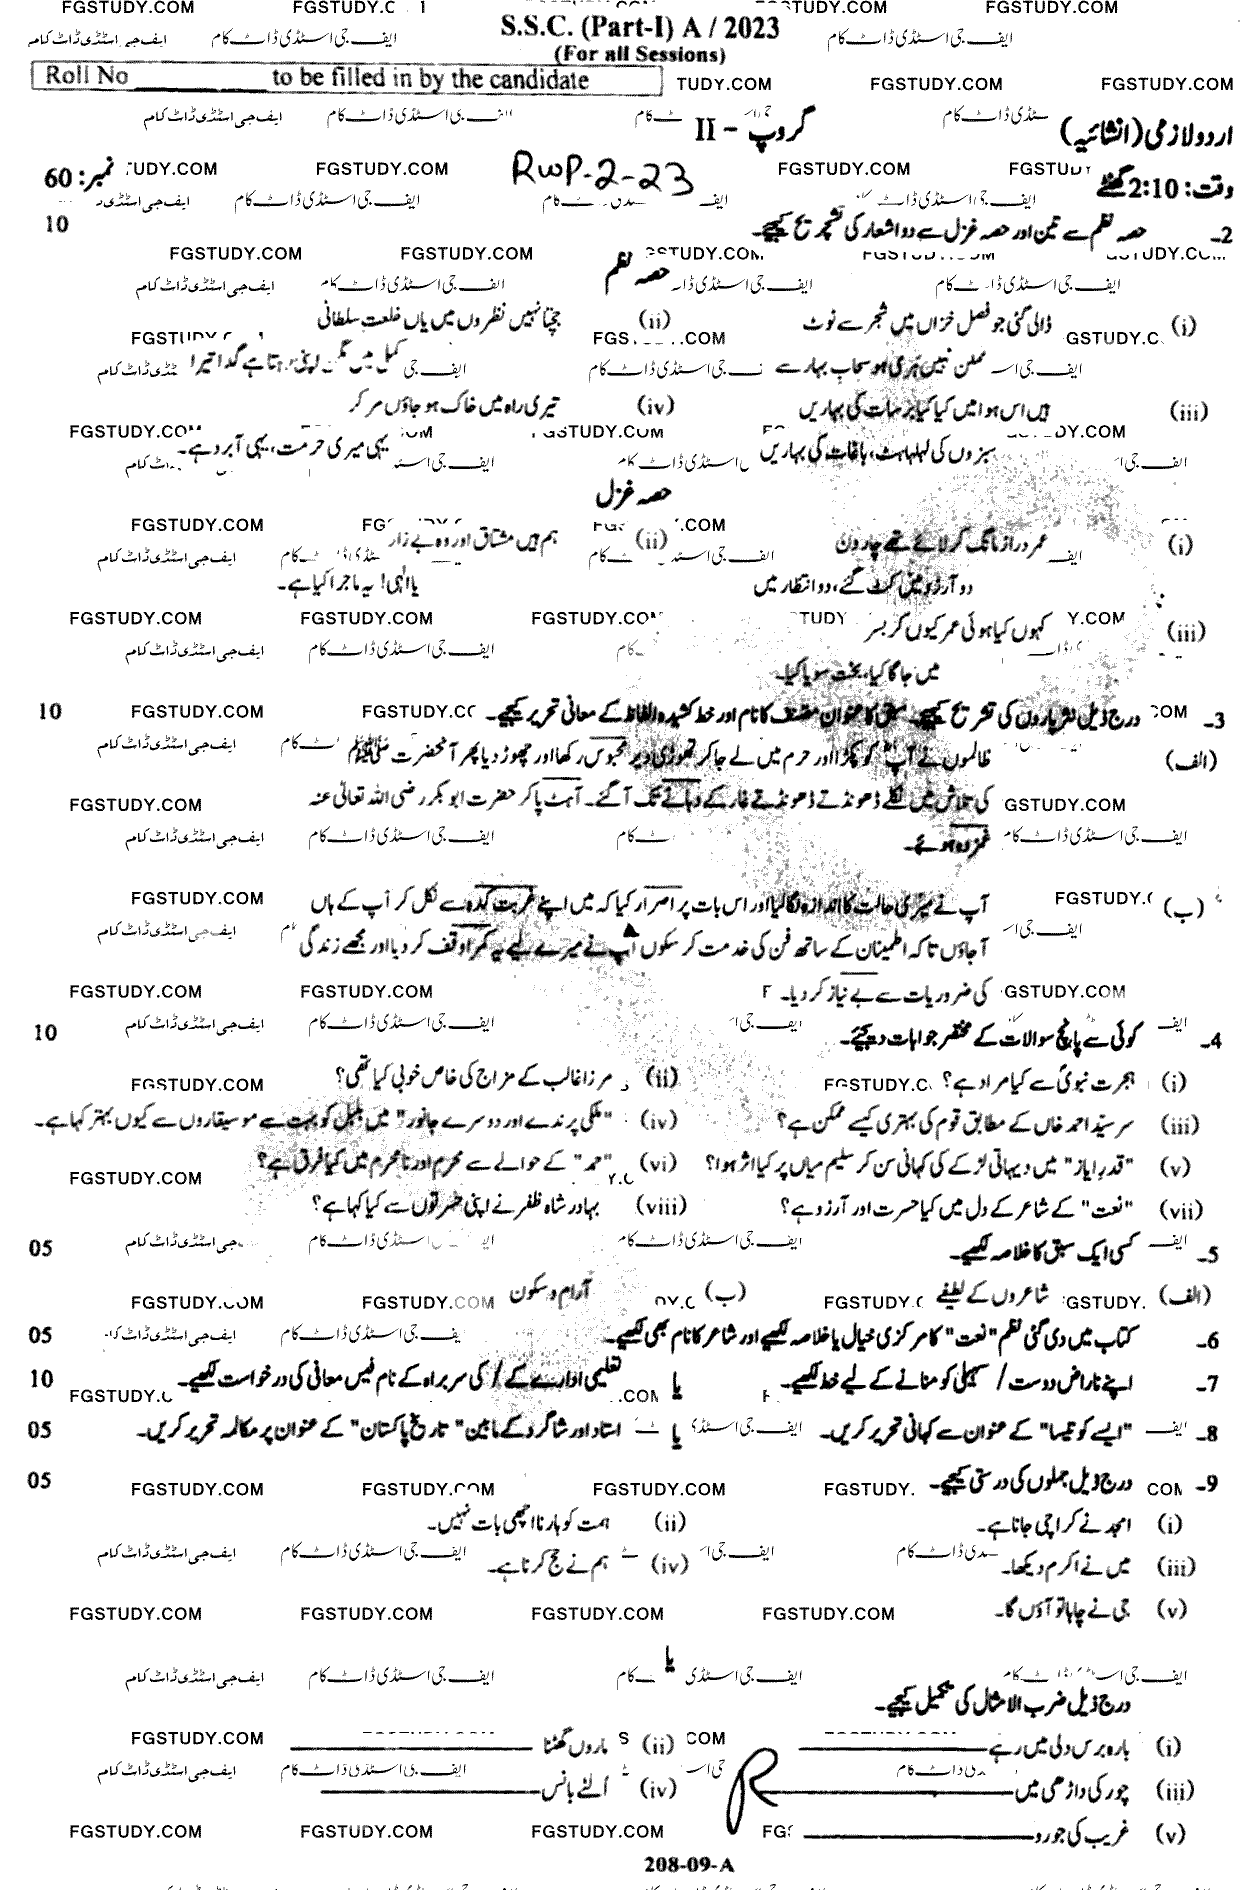 S.S.C. (Part-I) A / 2023
(For all Sessions)
Roll No ________ to be filled in by the candidate
اردو لازمی (انشائیہ) گروپ – II
وقت: 2:10 گھنٹے RWP-2-23 نمبر: 60
2۔ حصہ نظم سے تین اور حصہ غزل سے دو اشعار کی تشریح کیجیے۔ 10
حصہ نظم
(i) ڈالی گئی جو فصل خزاں میں شجر سے ٹوٹ (ii) جچتا نہیں نظروں میں یاں خلعت سلطانی
ممکن نہیں ہری ہو سحاب بہار سے کملی میں مگن اپنی رہتا ہے گدا تیرا
(iii) ہیں اس ہوا میں کیا کیا برسات کی بہاریں (iv) تیری راہ میں خاک ہو جاؤں مر کر
سبزوں کی لہلہاہٹ، باغات کی بہاریں یہی میری حرمت، یہی آبرو ہے۔
حصہ غزل
(i) عمر دراز مانگ کر لائے تھے چار دن (ii) ہم ہیں مشتاق اور وہ بے زار
دو آرزو میں کٹ گئے، دو انتظار میں یا الٰہی! یہ ماجرا کیا ہے۔
(iii) کہوں کیا ہوئی عمر کیوں کر بسر
میں جاگا کیا، بخت سویا کیا۔
3۔ درج ذیل نثر پاروں کی تشریح کیجیے۔ سبق کا عنوان مصنف کا نام اور خط کشیدہ الفاظ کے معانی تحریر کیجیے۔ 10
(الف) ظالموں نے آپؓ کو پکڑا اور حرم میں لے جا کر تھوڑی دیر محبوس رکھا اور چھوڑ دیا پھر آنحضرت ﷺ
کی تلاش میں نکلے ڈھونڈتے ڈھونڈتے غار کے دہانے تک آگئے۔ آہٹ پا کر حضرت ابو بکر رضی اللہ تعالیٰ عنہ
غمزدہ ہوئے۔
(ب) آپ نے میری حالت کا اندازہ لگا لیا اور اس بات پر اصرار کیا کہ میں اپنے غربت کدہ سے نکل کر آپ کے ہاں
آ جاؤں تاکہ اطمینان کے ساتھ فن کی خدمت کر سکوں آپ نے میرے لیے یہ کمرا وقف کر دیا اور مجھے زندگی
کی ضروریات سے بے نیاز کر دیا۔
4۔ کوئی سے پانچ سوالات کے مختصر جوابات دیجیے۔ 10
(i) ہجرت نبویؐ سے کیا مراد ہے؟ (ii) مرزا غالب کے مزاج کی خاص خوبی کیا تھی؟
(iii) سر سیّد احمد خاں کے مطابق قوم کی بہتری کیسے ممکن ہے؟ (iv) "ملکی پرندے اور دوسرے جانور" میں بلبل کو بہت سے موسیقاروں سے کیوں بہتر کہا ہے۔
(v) "قدر ایاز" میں دیہاتی لڑکے کی کہانی سن کر سلیم میاں پر کیا اثر ہوا؟ (vi) "حمد" کے حوالے سے محرم اور نا محرم میں کیا فرق ہے؟
(vii) "نعت" کے شاعر کے دل میں کیا حسرت اور آرزو ہے؟ (viii) بہادر شاہ ظفر نے اپنی حسرتوں سے کیا کہا ہے؟
5۔ کسی ایک سبق کا خلاصہ لکھیے۔ 05
(الف) شاعروں کے لطیفے (ب) آرام و سکون
6۔ کتاب میں دی گئی نظم "نعت" کا مرکزی خیال یا خلاصہ لکھیے اور شاعر کا نام بھی لکھیے۔ 05
7۔ اپنے ناراض دوست / سہیلی کو منانے کے لیے خط لکھیے۔ یا تعلیمی ادارے کے / کی سربراہ کے نام فیس معافی کی درخواست لکھیے۔ 10
8۔ "ایسے کو تیسا" کے عنوان سے کہانی تحریر کریں۔ یا استاد اور شاگرد کے مابین "تاریخ پاکستان" کے عنوان پر مکالمہ تحریر کریں۔ 05
9۔ درج ذیل جملوں کی درستی کیجیے۔ 05
(i) امجد نے کراچی جانا ہے۔ (ii) ہمت کو ہارنا اچھی بات نہیں۔
(iii) میں نے اکرم دیکھا۔ (iv) ہم نے حج کرنا ہے۔
(v) جی نے چاہا تو آؤں گا۔
یا
درج ذیل ضرب الامثال کی تکمیل کیجیے۔
(i) بارہ برس دلی میں رہے ________ (ii) ماروں گھٹنا ________
(iii) چور کی داڑھی میں ________ (iv) اُلٹے بانس ________
(v) غریب کی جورو ________
208-09-A
FGSTUDY.COM
ایف جی اسٹڈی ڈاٹ کام